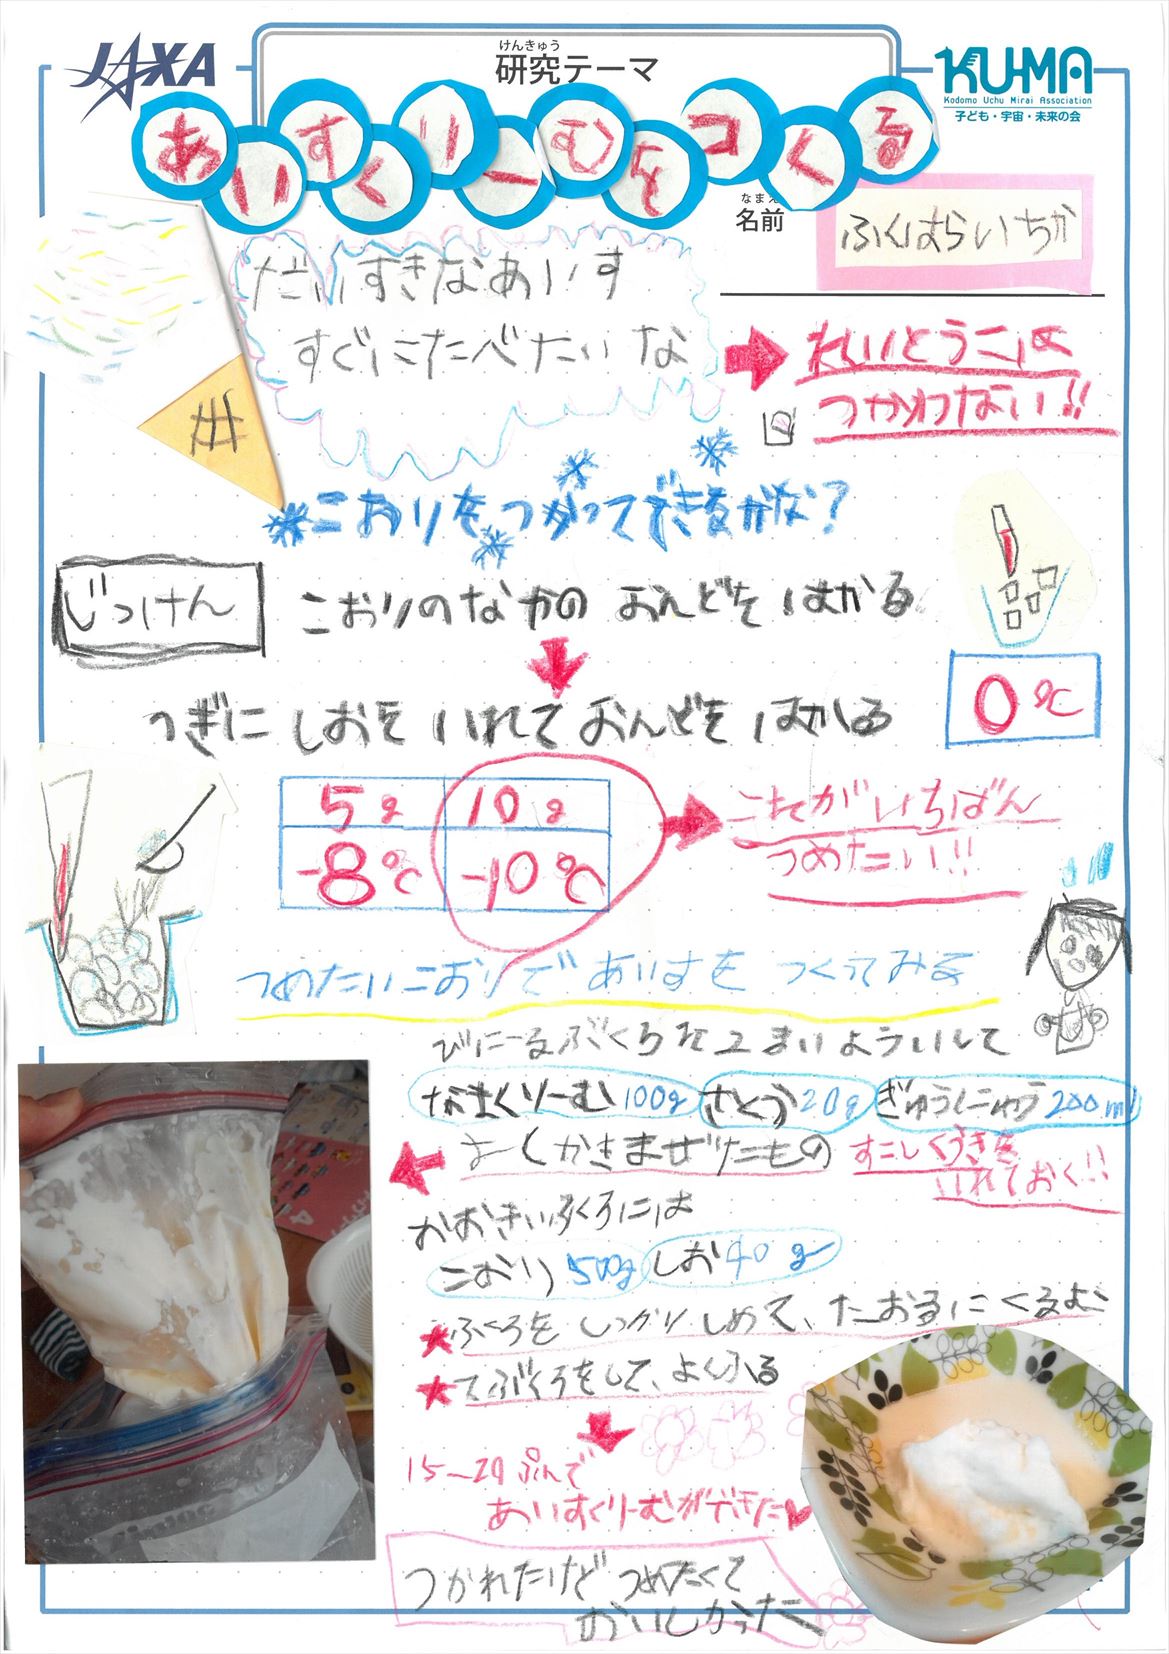 JAXA
けんきゅう
研究テーマ
KU-MA
Kodomo Uchu Mirai Association
子ども・宇宙・未来の会
あいすくりーむをつくる
なまえ
名前
ふくはらいちか
だいすきなあいす
すぐにたべたいな
れいとうこは
つかわない!!
こおりをつかってできるかな?
じっけん
こおりのなかの おんどを はかる
0℃
つぎに しおを いれて おんどを はかる
5g 10g
-8℃ -10℃
これが いちばん
つめたい!!
つめたいこおりで あいすを つくってみる
びにーるぶくろを2まいよういして
なまくりーむ100g さとう20g ぎゅうにゅう200ml
よくかきまぜたもの すこしくうきを
いれておく!!
おおきいふくろには
こおり500g しお40g
★ふくろを しっかり しめて、たおるにくるむ
★てぶくろをして、よくふる
15～20ぷんで
あいすくりーむができた
つかれたけど つめたくて
おいしかった